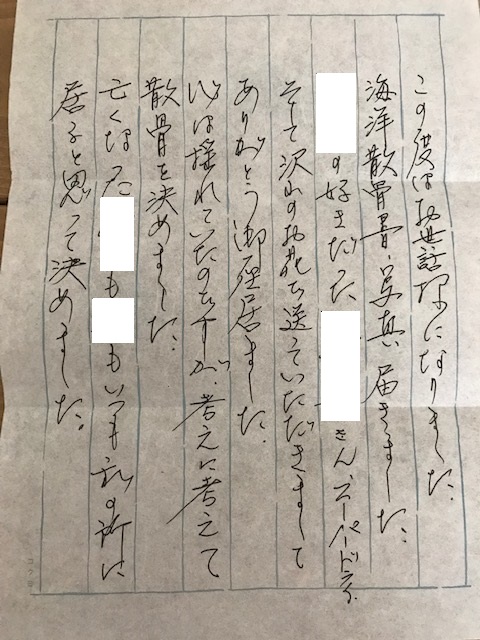 この度はお世話様になりました。
海洋散骨書、写真、届きました。
の好きだった さん、
そして沢山のお花で送ていただきまして
ありがとう御座居ました。
心は揺れていたのですが、考えに考えて
散骨を決めました。
亡くなった も もいつも私の所に
居ると思って決めました。